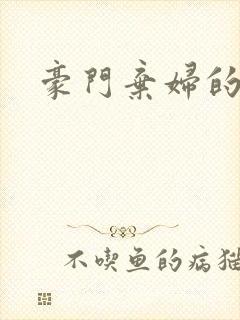 豪門棄婦的
不喫鱼的病猫